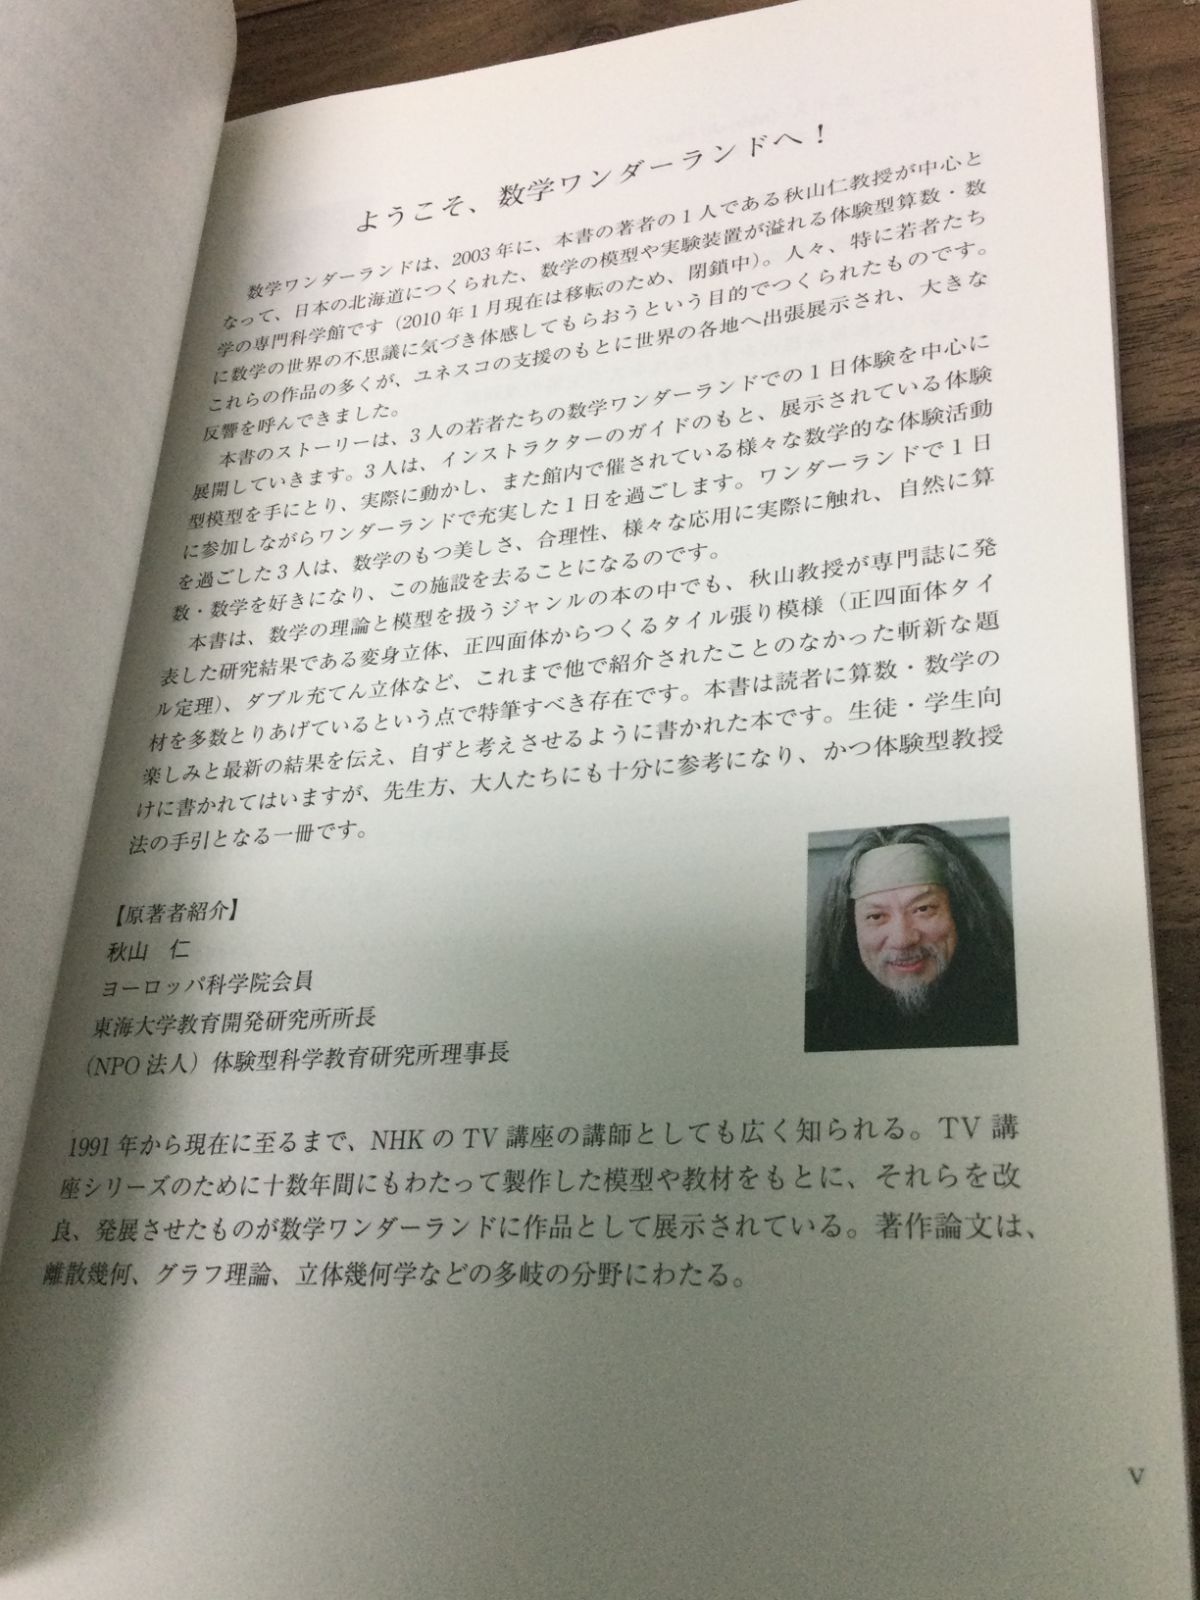 ようこそ、数学ワンダーランドへ！
数学ワンダーランドは、2003年に、本書の著者の1人である秋山仁教授が中心と
なって、日本の北海道につくられた、数学の模型や実験装置が溢れる体験型算数・数
学の専門科学館です（2010年1月現在は移転のため、閉鎖中）。人々、特に若者たち
に数学の世界の不思議に気づき体感してもらおうという目的でつくられたものです。
これらの作品の多くが、ユネスコの支援のもとに世界の各地へ出張展示され、大きな
反響を呼んできました。
本書のストーリーは、3人の若者たちの数学ワンダーランドでの1日体験を中心に
展開していきます。3人は、インストラクターのガイドのもと、展示されている体験
型模型を手にとり、実際に動かし、また館内で催されている様々な数学的な体験活動
に参加しながらワンダーランドで充実した1日を過ごします。ワンダーランドで1日
を過ごした3人は、数学のもつ美しさ、合理性、様々な応用に実際に触れ、自然に算
数・数学を好きになり、この施設を去ることになるのです。
本書は、数学の理論と模型を扱うジャンルの本の中でも、秋山教授が専門誌に発
表した研究結果である変身立体、正四面体からつくるタイル張り模様（正四面体タイ
ル定理）、ダブル充てん立体など、これまで他で紹介されたことのなかった斬新な題
材を多数とりあげているという点で特筆すべき存在です。本書は読者に算数・数学の
楽しみと最新の結果を伝え、自ずと考えさせるように書かれた本です。生徒・学生向
けに書かれてはいますが、先生方、大人たちにも十分に参考になり、かつ体験型教授
法の手引となる一冊です。
【原著者紹介】
秋山　仁
ヨーロッパ科学院会員
東海大学教育開発研究所所長
（NPO法人）体験型科学教育研究所理事長
1991年から現在に至るまで、NHKのTV講座の講師としても広く知られる。TV講
座シリーズのために十数年間にもわたって製作した模型や教材をもとに、それらを改
良、発展させたものが数学ワンダーランドに作品として展示されている。著作論文は、
離散幾何、グラフ理論、立体幾何学などの多岐の分野にわたる。
V